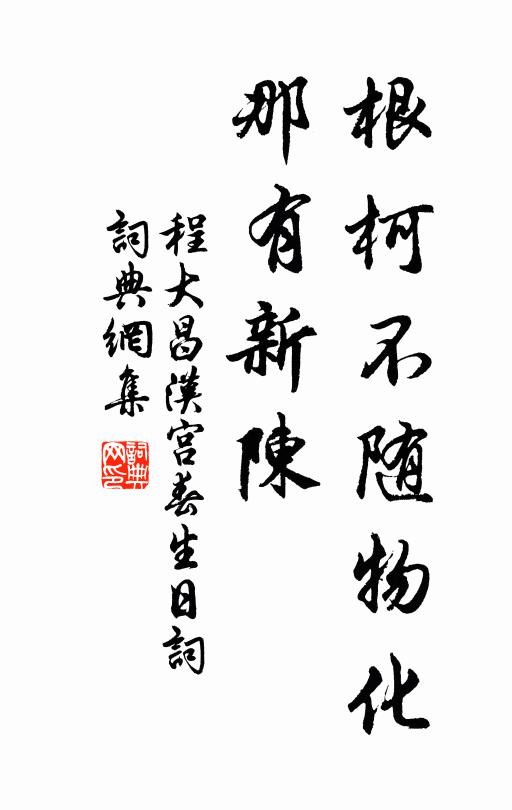 根柯不随物化
那有新陳
程大昌漢宮春生日詞
詞典網集
詞典
网印